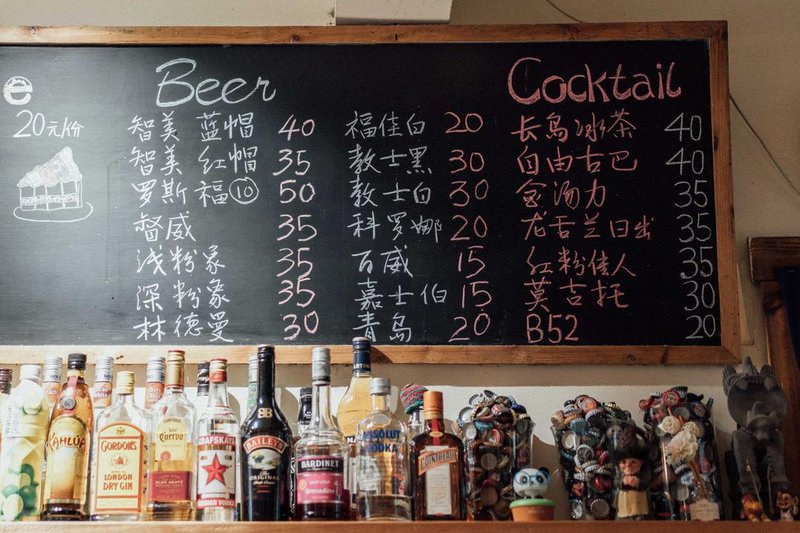 e
20元/份
Beer
智美 蓝帽 40
智美 红帽 35
罗斯 福⑩ 50
督威 35
浅粉象 35
深粉象 35
林德曼 30
福佳白 20
教士黑 30
教士白 30
科罗娜 20
百威 15
嘉士伯 15
青岛 20
Cocktail
长岛冰茶 40
自由古巴 40
金汤力 35
龙舌兰日出 35
红粉佳人 35
莫吉托 30
B52 20
KAHLUA
GORDON'S
LONDON
DRY GIN
Cuervo
GRAFSKAYA
RUSSIAN VODKA
BAILEYS
ORIGINAL
BARDINET
Grenadine
ABSOLUT
VODKA
COINTREAU